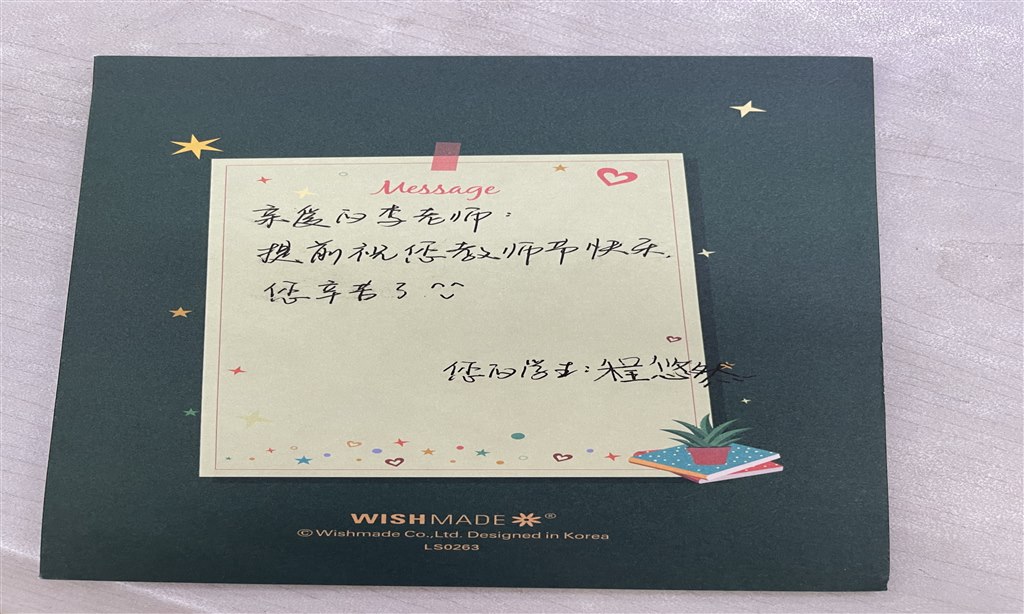 Message
亲爱的李老师：
提前祝您教师节快乐.
您辛苦了^^
您的学生：程悠然
WISHMADE ®
©Wishmade Co.,Ltd. Designed in Korea
LS0263